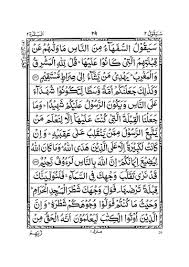 سَيَقُوْلُ ٢
٢٨
سَيَقُوْلُ السُّفَهَآءُ مِنَ النَّاسِ مَا وَلّٰىهُمْ عَنْ
قِبْلَتِهِمُ الَّتِيْ كَانُوْا عَلَيْهَا ؕ قُلْ لِّلّٰهِ الْمَشْرِقُ
وَالْمَغْرِبُ ؕ يَهْدِيْ مَنْ يَّشَآءُ اِلٰى صِرَاطٍ مُّسْتَقِيْمٍ
وَكَذٰلِكَ جَعَلْنٰكُمْ اُمَّةً وَّسَطًا لِّتَكُوْنُوْا شُهَدَآءَ
عَلَى النَّاسِ وَيَكُوْنَ الرَّسُوْلُ عَلَيْكُمْ شَهِيْدًا ؕ وَمَا
جَعَلْنَا الْقِبْلَةَ الَّتِيْ كُنْتَ عَلَيْهَآ اِلَّا لِنَعْلَمَ مَنْ
يَّتَّبِعُ الرَّسُوْلَ مِمَّنْ يَّنْقَلِبُ عَلٰى عَقِبَيْهِ ؕ وَاِنْ
كَانَتْ لَكَبِيْرَةً اِلَّا عَلَى الَّذِيْنَ هَدَى اللّٰهُ ؕ وَمَا كَانَ اللّٰهُ
لِيُضِيْعَ اِيْمَانَكُمْ ؕ اِنَّ اللّٰهَ بِالنَّاسِ لَرَءُوْفٌ رَّحِيْمٌ
قَدْ نَرٰى تَقَلُّبَ وَجْهِكَ فِي السَّمَآءِ ۚ فَلَنُوَلِّيَنَّكَ
قِبْلَةً تَرْضٰىهَا ۪ فَوَلِّ وَجْهَكَ شَطْرَ الْمَسْجِدِ الْحَرَامِ ؕ
وَحَيْثُ مَا كُنْتُمْ فَوَلُّوْا وُجُوْهَكُمْ شَطْرَهٗ ؕ وَاِنَّ
الَّذِيْنَ اُوْتُوا الْكِتٰبَ لَيَعْلَمُوْنَ اَنَّهُ الْحَقُّ مِنْ
رَّبِّهِمْ